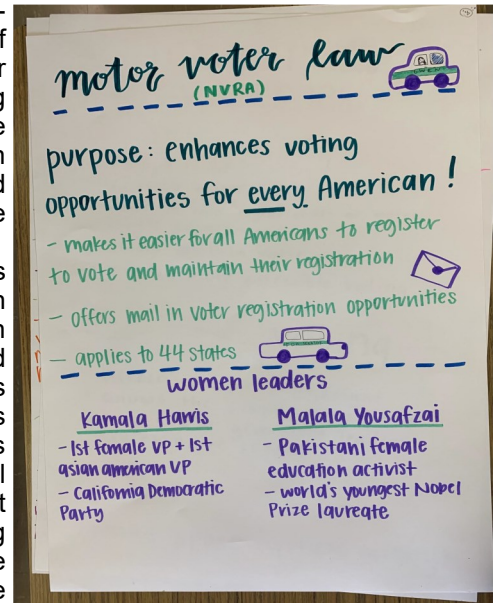 motor voter law
(NVRA)
purpose: enhances voting
opportunities for every American!
- makes it easier for all Americans to register
to vote and maintain their registration
- offers mail in voter registration opportunities
- applies to 44 states
women leaders
Kamala Harris
- 1st female VP + 1st
asian american VP
- California Democratic
Party
Malala Yousafzai
- Pakistani female
education activist
- world's youngest Nobel
Prize laureate